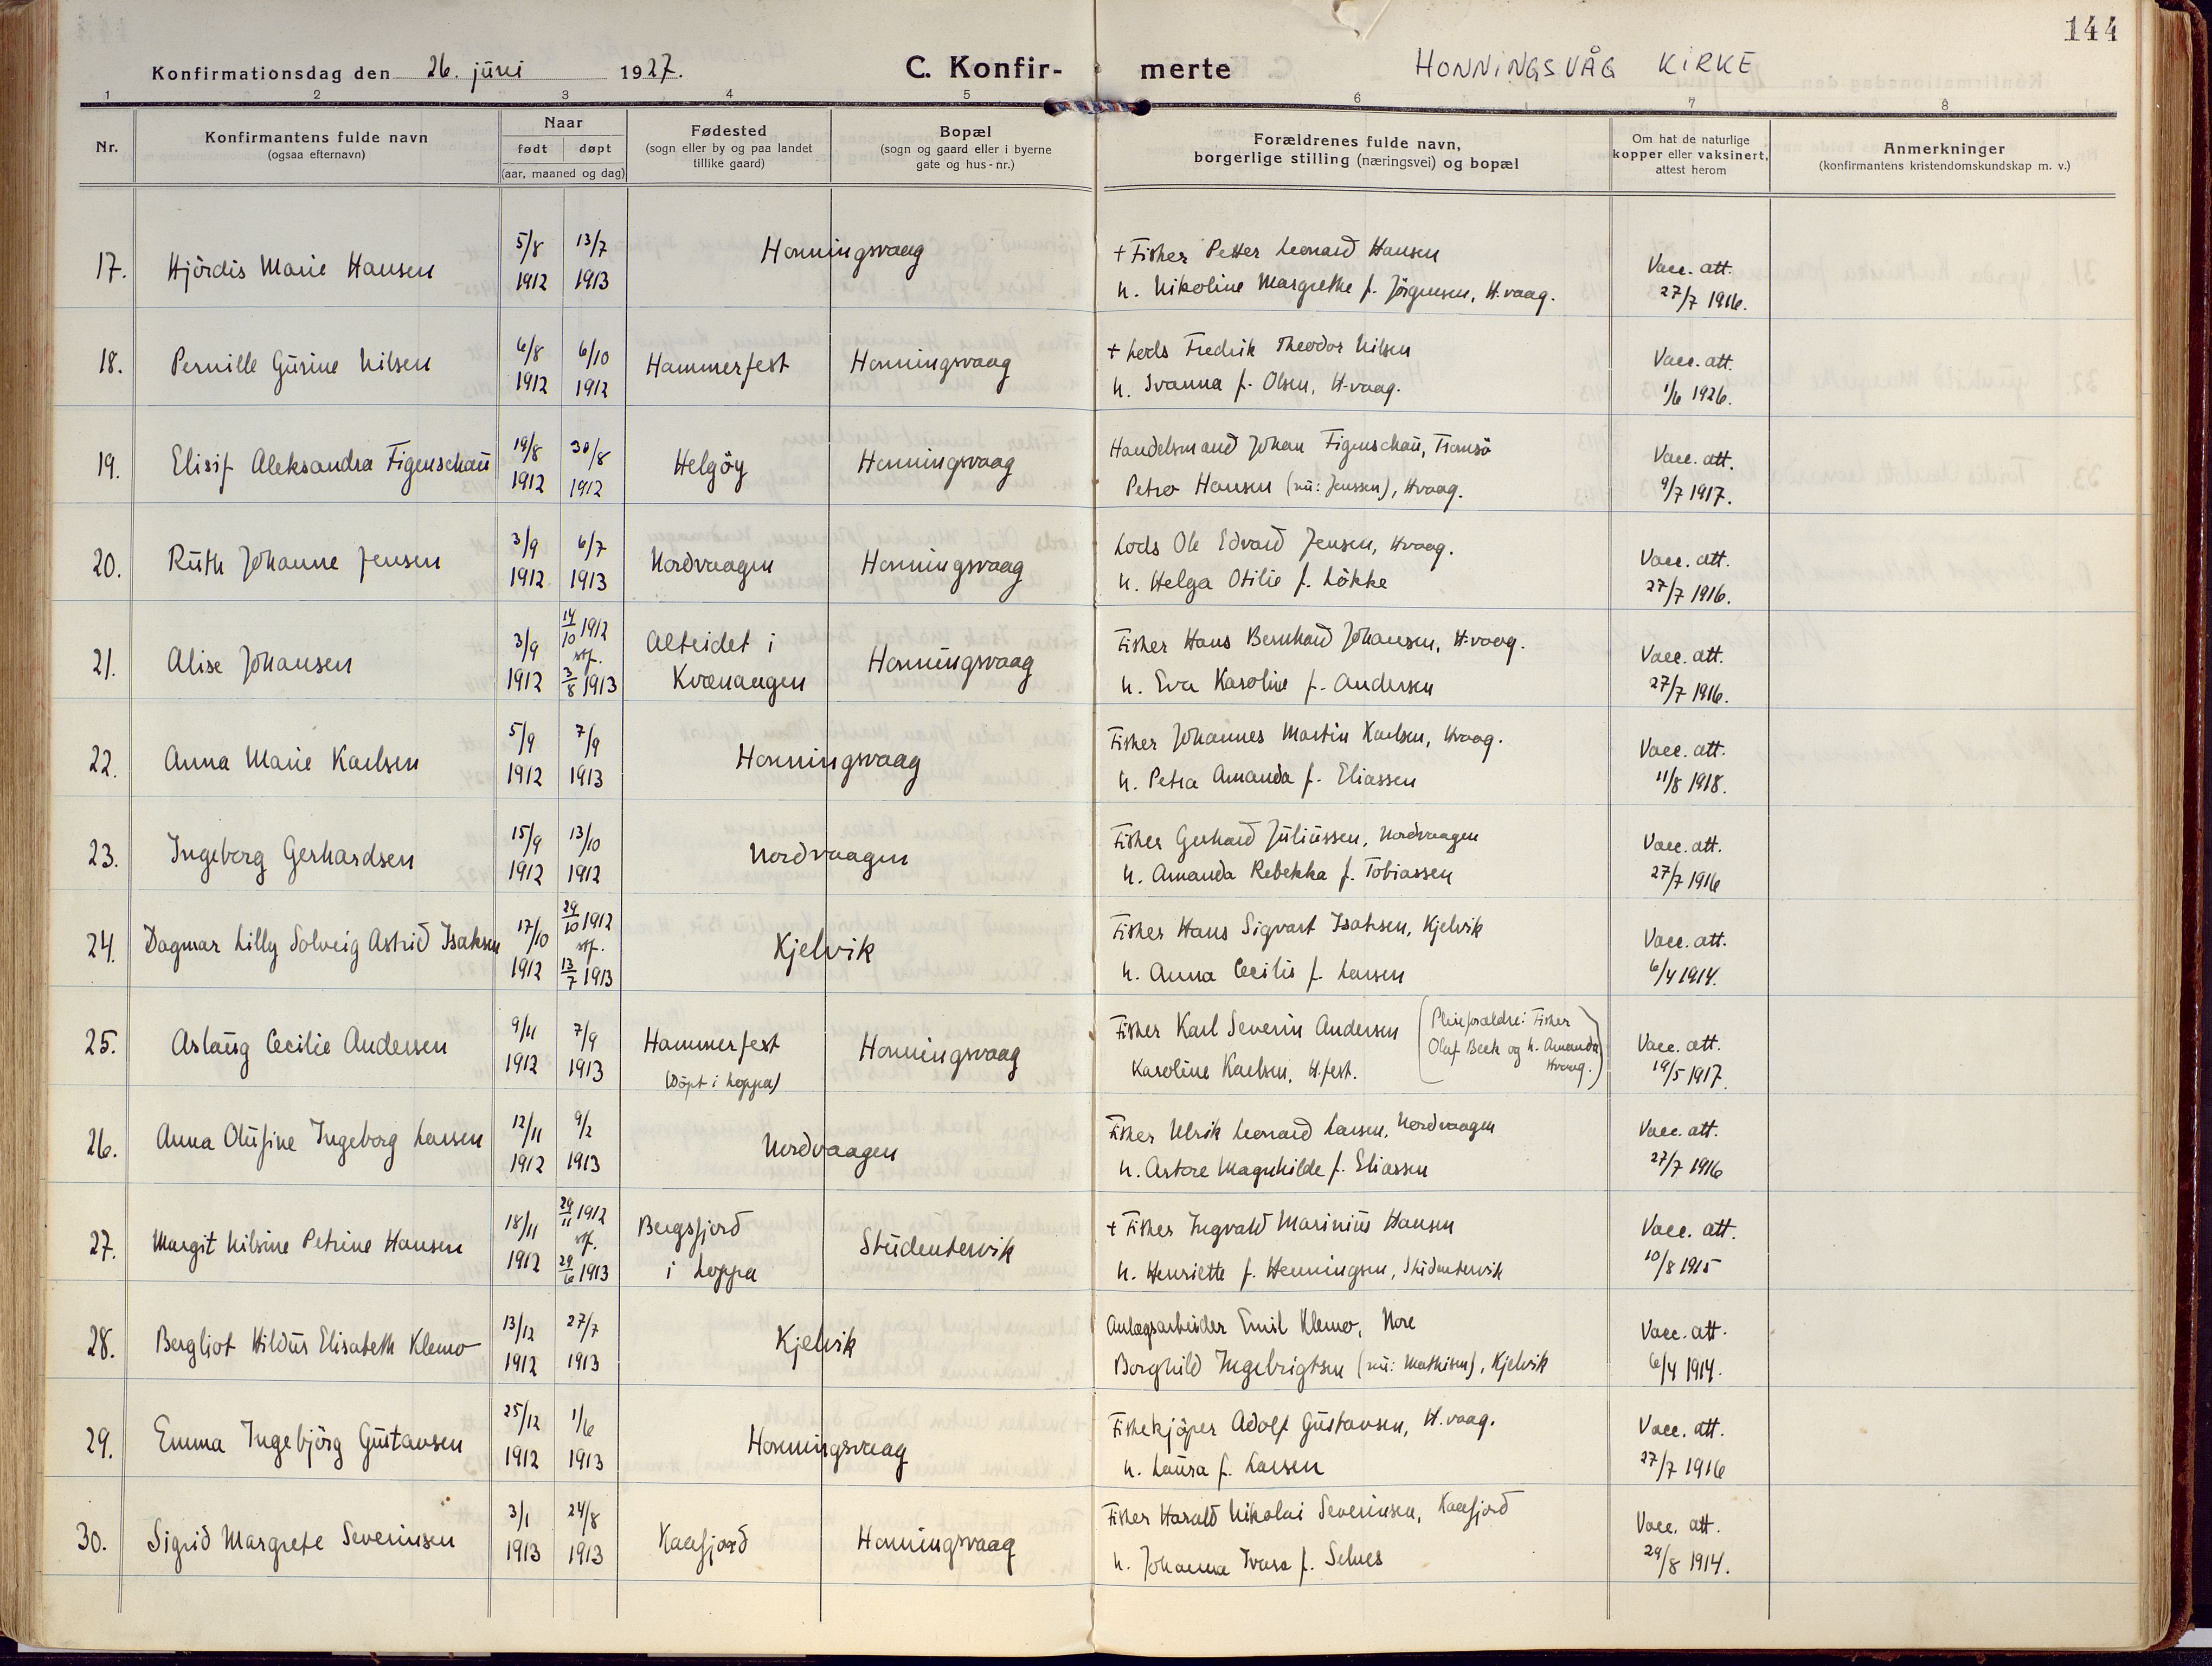 144
Konfirmationsdag den 26. juni 1927.
C. Konfir- merte
HONNINGSVÅG KIRKE
1 2 3 4 5 6 7 8
Nr.
Konfirmantens fulde navn
(ogsaa efternavn)
Naar
født døpt
(aar, maaned og dag)
Fødested
(sogn eller by og paa landet
tillike gaard)
Bopæl
(sogn og gaard eller i byerne
gate og hus-nr.)
Forældrenes fulde navn,
borgerlige stilling (næringsvei) og bopæl
Om hat de naturlige
kopper eller vaksinert,
attest herom
Anmerkninger
(konfirmantens kristendomskundskap m. v.)
17. Hjördis Marie Hansen 5/8 1912 13/7 1913 Honningsvaag
+ Fisker Petter Leonard Hansen
h. Nikoline Margrethe f. Jörgensen, H.vaag.
Vacc. att. 27/7 1916.
18. Pernille Gurine Nilsen 6/8 1912 6/10 1912 Hammerfest Honningsvaag
+ Lods Fredrik Theodor Nilsen
h. Ivanna f. Olsen, H.vaag.
Vacc. att. 1/6 1926.
19. Elisif Aleksandra Figenschau 19/8 1912 30/8 1912 Helgöy Honningsvaag
Handelsmand Johan Figenschau, Tromsö
Petra Hansen (nu: Jenssen), Hvaag.
Vacc. att. 9/7 1917.
20. Ruth Johanne Jensen 3/9 1912 6/7 1913 Nordvaagen Honningsvaag
Lods Ole Edvard Jensen, Hvaag.
h. Helga Otilie f. Lökke
Vacc. att. 27/7 1916.
21. Alise Johansen 3/9 1912 14/10 1912 stf. 3/8 1913 Alteidet i Kvænangen Honningsvaag
Fisker Hans Bernhard Johansen, H.vaag.
h. Eva Karoline f. Andersen
Vacc. att. 27/7 1916.
22. Anna Marie Karlsen 5/9 1912 7/9 1913 Honningsvaag
Fisker Johannes Martin Karlsen, Hvaag.
h. Petra Amanda f. Eliassen
Vacc. att. 11/8 1918.
23. Ingeborg Gerhardsen 15/9 1912 13/10 1912 Nordvaagen
Fisker Gerhard Juliussen, Nordvaagen
h. Amanda Rebekka f. Tobiassen
Vacc. att. 27/7 1916
24. Dagmar Lilly Solveig Astrid Isaksen 17/10 1912 29/10 1912 stf. 13/7 1913 Kjelvik
Fisker Hans Sigvart Isaksen, Kjelvik
h. Anna Cecilie f. Larsen
Vacc. att. 6/4 1914.
25. Aslaug Cecilie Andersen 9/11 1912 7/9 1913 Hammerfest (döpt i Loppa) Honningsvaag
Fisker Karl Severin Andersen
Karoline Karlsen, H.fest.
(Pleieforældre: Fisker
Olaf Beck og h. Amanda
Hvaag.)
Vacc. att. 19/5 1917.
26. Anna Olufine Ingeborg Larsen 12/11 1912 9/2 1913 Nordvaagen
Fisker Ulrik Leonard Larsen, Nordvaagen
h. Astore Magnhilde f. Eliassen
Vacc. att. 27/7 1916
27. Margit Nilsine Petrine Hansen 18/11 1912 29/11 1912 stf. 29/6 1913 Bergsfjord i Loppa Studentervik
+ Fisker Ingvald Marinius Hansen
h. Henriette f. Henningsen, Studentervik
Vacc. att. 10/8 1915
28. Bergliot Hildus Elisabeth Klemo 13/12 1912 27/7 1913 Kjelvik
Anlægsarbeider Emil Klemo, Nore
Borghild Ingebrigtsen (nu: Mathisen), Kjelvik
Vacc. att. 6/4 1914.
29. Emma Ingebjörg Gustavsen 25/12 1912 1/6 1913 Honningsvaag
Fiskekjöper Adolf Gustavsen, H.vaag.
h. Laura f. Larsen
Vacc. att. 27/7 1916
30. Sigrid Margrete Severinsen 3/1 1913 24/8 1913 Kaafjord Honningsvaag
Fisker Harald Nikolai Severinsen, Kaafjord
h. Johanna f. Selnes
Vacc. att. 29/8 1914.